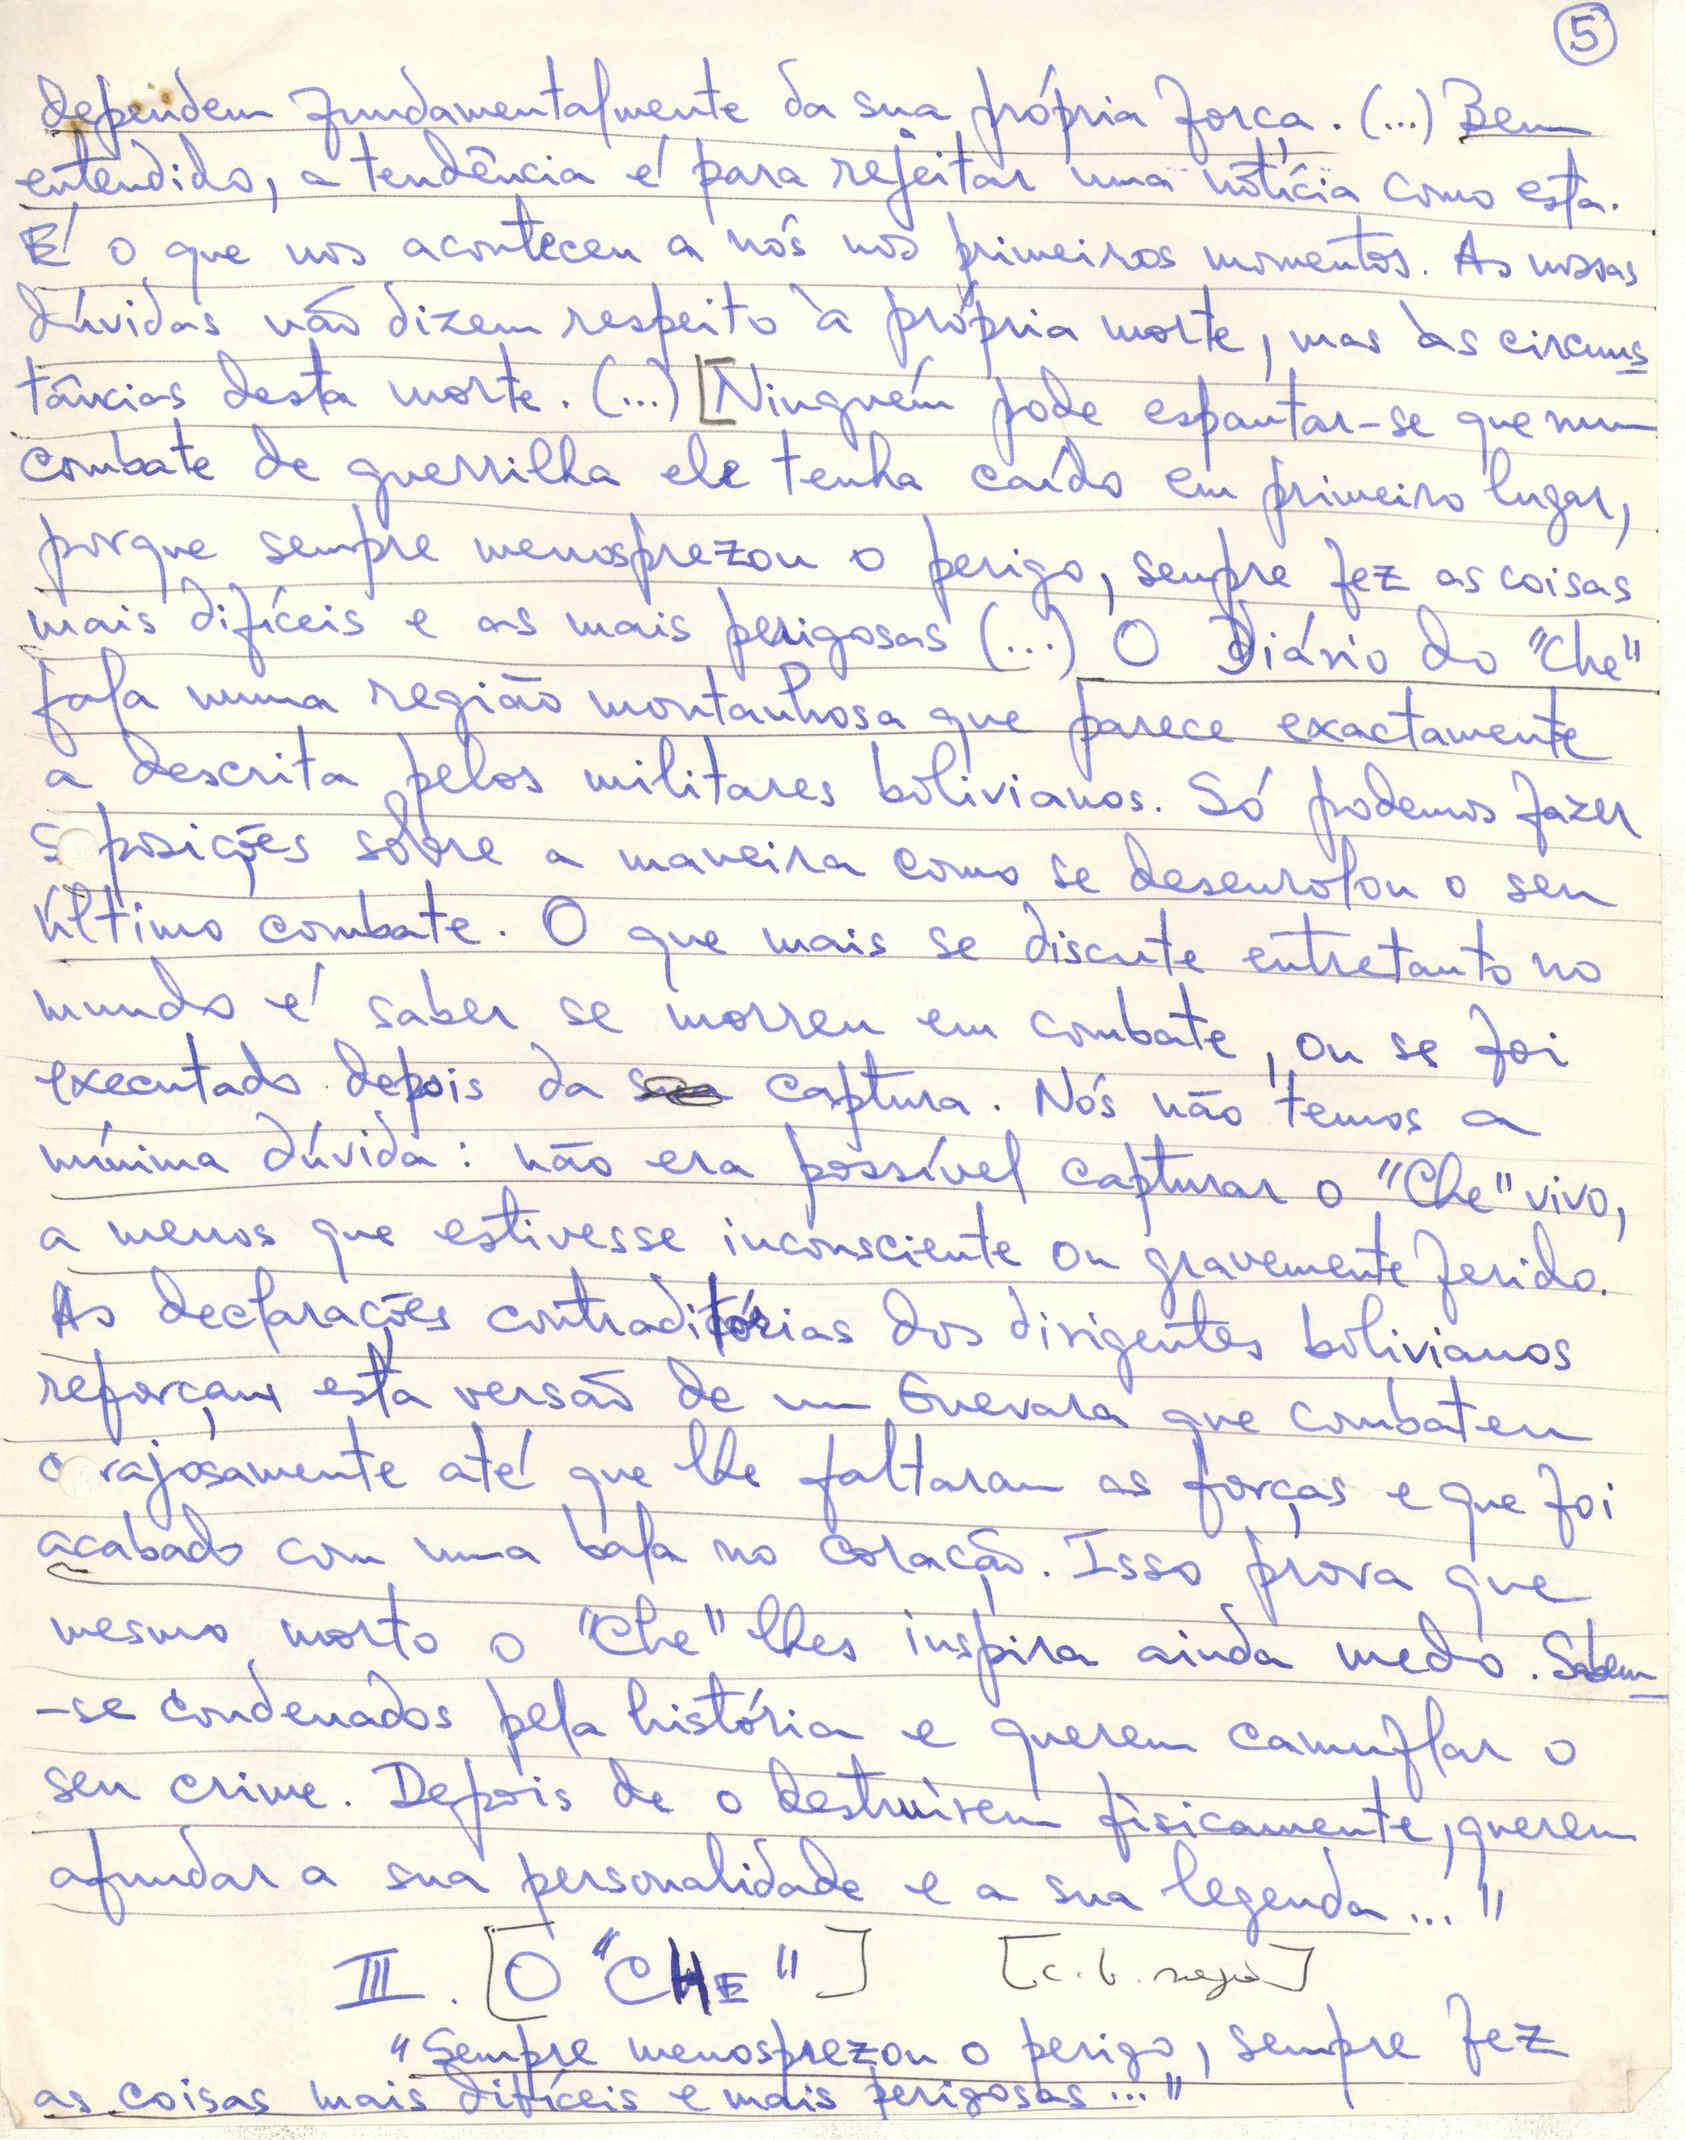 5
dependem fundamentalmente da sua própria força. (...) Bem
entendido, a tendência é para rejeitar uma notícia como esta.
É o que nos aconteceu a nós nos primeiros momentos. As nossas
dúvidas não dizem respeito à própria morte, mas às circuns
tâncias desta morte. (...) [Ninguém pode espantar-se que num
combate de guerrilha ele tenha caído em primeiro lugar,
porque sempre menosprezou o perigo, sempre fez as coisas
mais difíceis e as mais perigosas (...) O Diário do "Che"
fala numa região montanhosa que parece exactamente
a descrita pelos militares bolivianos. Só podemos fazer
s posições sobre a maneira como se desenrolou o seu
último combate. O que mais se discute entretanto no
mundo é saber se morreu em combate, ou se foi
executado depois da captura. Nós não temos a
mínima dúvida: não era possível capturar o "Che" vivo,
a menos que estivesse inconsciente ou gravemente ferido.
As declarações contraditórias dos dirigentes bolivianos
reforçam esta versão de um Guevara que combateu
c rajosamente até que lhe faltaram as forças e que foi
acabado com uma bala no coração. Isso prova que
mesmo morto o "Che" lhes inspira ainda medo. Sabem-
-se condenados pela história e querem camuflar o
seu crime. Depois de o destruirem fìsicamente, querem
afundar a sua personalidade e a sua legenda..."
III. [O "CHE"] [c. b. negro]
"Sempre menosprezou o perigo, sempre fez
as coisas mais difíceis e mais perigosas..."